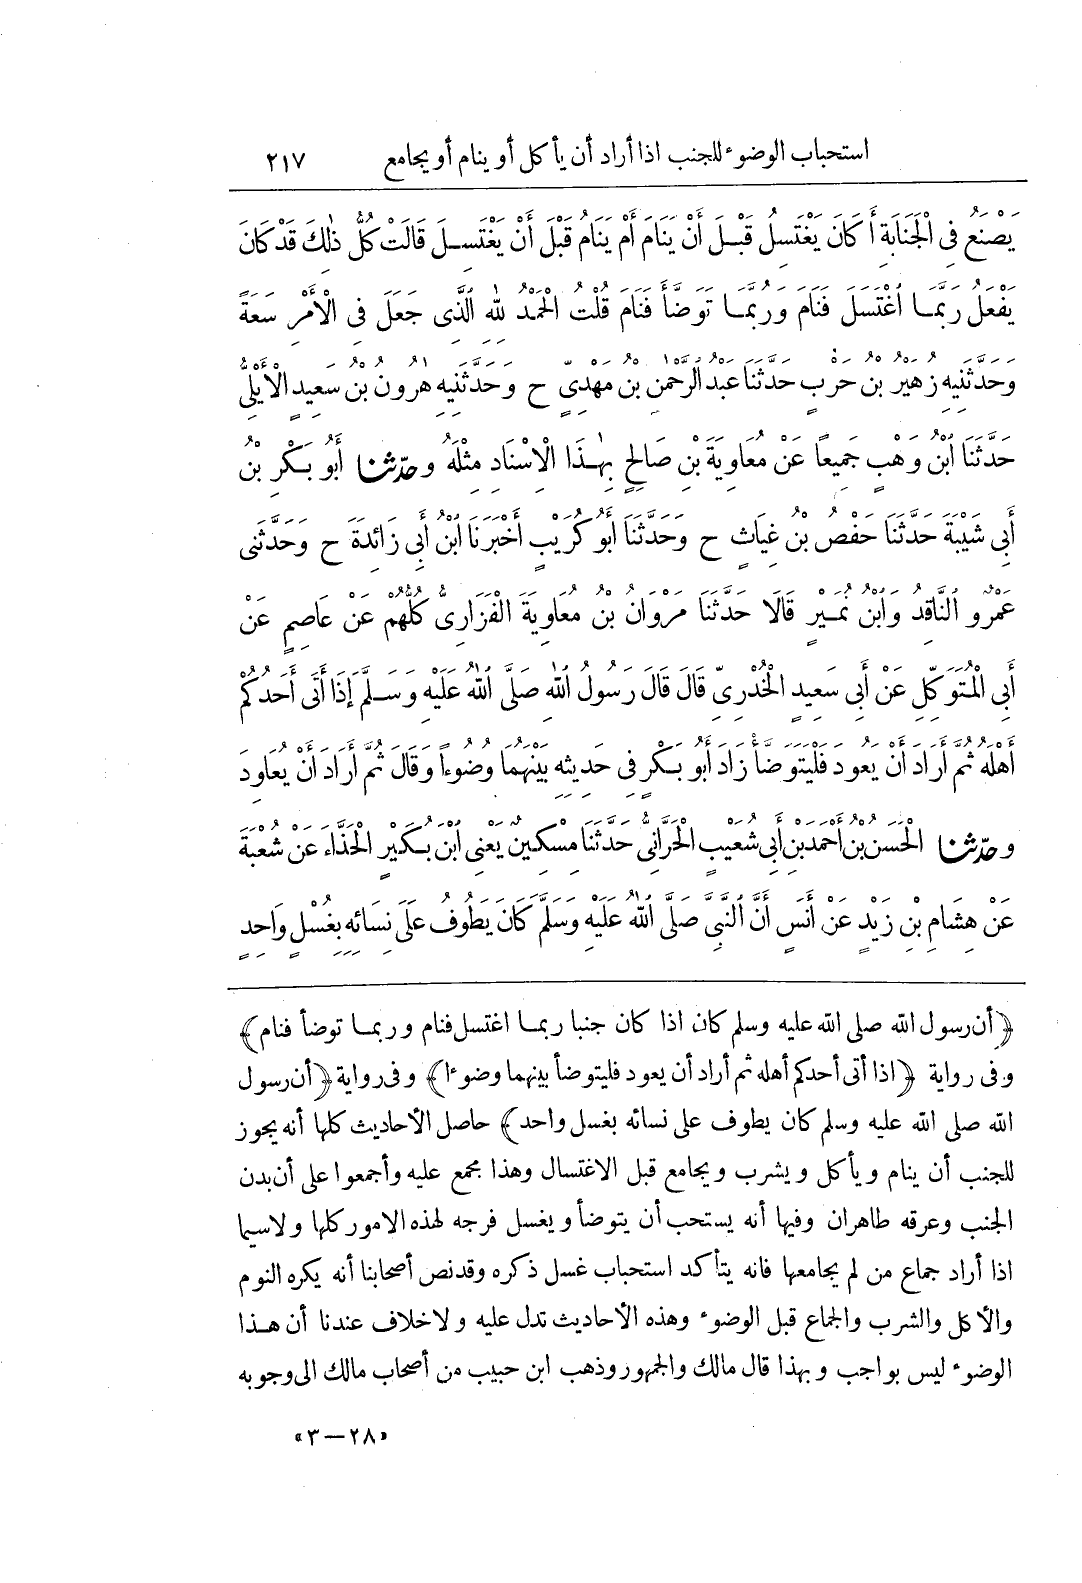 استحباب الوضوء للجنب اذا أراد أن يأكل أو ينام أو يجامع ٢١٧
يَصْنَعُ فِى الْجَنَابَةِ أَكَانَ يَغْتَسِلُ قَبْلَ أَنْ يَنَامَ أَمْ يَنَامُ قَبْلَ أَنْ يَغْتَسِلَ قَالَتْ كُلُّ ذٰلِكَ قَدْ كَانَ
يَفْعَلُ رُبَّمَا اغْتَسَلَ فَنَامَ وَرُبَّمَا تَوَضَّأَ فَنَامَ قُلْتُ الْحَمْدُ لِلّٰهِ الَّذِى جَعَلَ فِى الْأَمْرِ سَعَةً
وَحَدَّثَنِيهِ زُهَيْرُ بْنُ حَرْبٍ حَدَّثَنَا عَبْدُ الرَّحْمٰنِ بْنُ مَهْدِىٍّ ح وَحَدَّثَنِيهِ هٰرُونُ بْنُ سَعِيدٍ الْأَيْلِىُّ
حَدَّثَنَا ابْنُ وَهْبٍ جَمِيعًا عَنْ مُعَاوِيَةَ بْنِ صَالِحٍ بِهٰذَا الْإِسْنَادِ مِثْلَهُ وحدّثنا أَبُو بَكْرِ بْنُ
أَبِى شَيْبَةَ حَدَّثَنَا حَفْصُ بْنُ غِيَاثٍ ح وَحَدَّثَنَا أَبُو كُرَيْبٍ أَخْبَرَنَا ابْنُ أَبِى زَائِدَةَ ح وَحَدَّثَنِى
عَمْرٌو النَّاقِدُ وَابْنُ نُمَيْرٍ قَالَا حَدَّثَنَا مَرْوَانُ بْنُ مُعَاوِيَةَ الْفَزَارِىُّ كُلُّهُمْ عَنْ عَاصِمٍ عَنْ
أَبِى الْمُتَوَكِّلِ عَنْ أَبِى سَعِيدٍ الْخُدْرِىِّ قَالَ قَالَ رَسُولُ اللّٰهِ صَلَّى اللّٰهُ عَلَيْهِ وَسَلَّمَ إِذَا أَتَى أَحَدُكُمْ
أَهْلَهُ ثُمَّ أَرَادَ أَنْ يَعُودَ فَلْيَتَوَضَّأْ زَادَ أَبُو بَكْرٍ فِى حَدِيثِهِ بَيْنَهُمَا وُضُوءًا وَقَالَ ثُمَّ أَرَادَ أَنْ يُعَاوِدَ
وحدّثنا الْحَسَنُ بْنُ أَحْمَدَ بْنِ أَبِى شُعَيْبٍ الْحَرَّانِىُّ حَدَّثَنَا مِسْكِينٌ يَعْنِى ابْنَ بُكَيْرٍ الْحَذَّاءَ عَنْ شُعْبَةَ
عَنْ هِشَامِ بْنِ زَيْدٍ عَنْ أَنَسٍ أَنَّ النَّبِىَّ صَلَّى اللّٰهُ عَلَيْهِ وَسَلَّمَ كَانَ يَطُوفُ عَلَى نِسَائِهِ بِغُسْلٍ وَاحِدٍ
﴿أن رسول الله صلى الله عليه وسلم كان اذا كان جنبا ربما اغتسل فنام وربما توضأ فنام﴾
وفى رواية ﴿اذا أتى أحدكم أهله ثم أراد أن يعود فليتوضأ بينهما وضوءا﴾ وفى رواية ﴿أن رسول
الله صلى الله عليه وسلم كان يطوف على نسائه بغسل واحد﴾ حاصل الأحاديث كلها أنه يجوز
للجنب أن ينام ويأكل ويشرب ويجامع قبل الاغتسال وهذا مجمع عليه وأجمعوا على أن بدن
الجنب وعرقه طاهران وفيها أنه يستحب أن يتوضأ ويغسل فرجه لهذه الامور كلها ولاسيما
اذا أراد جماع من لم يجامعها فانه يتأكد استحباب غسل ذكره وقدنص أصحابنا أنه يكره النوم
والأكل والشرب والجماع قبل الوضوء وهذه الأحاديث تدل عليه ولاخلاف عندنا أن هذا
الوضوء ليس بواجب وبهذا قال مالك والجمهور وذهب ابن حبيب من أصحاب مالك الى وجوبه
«٢٨—٣»